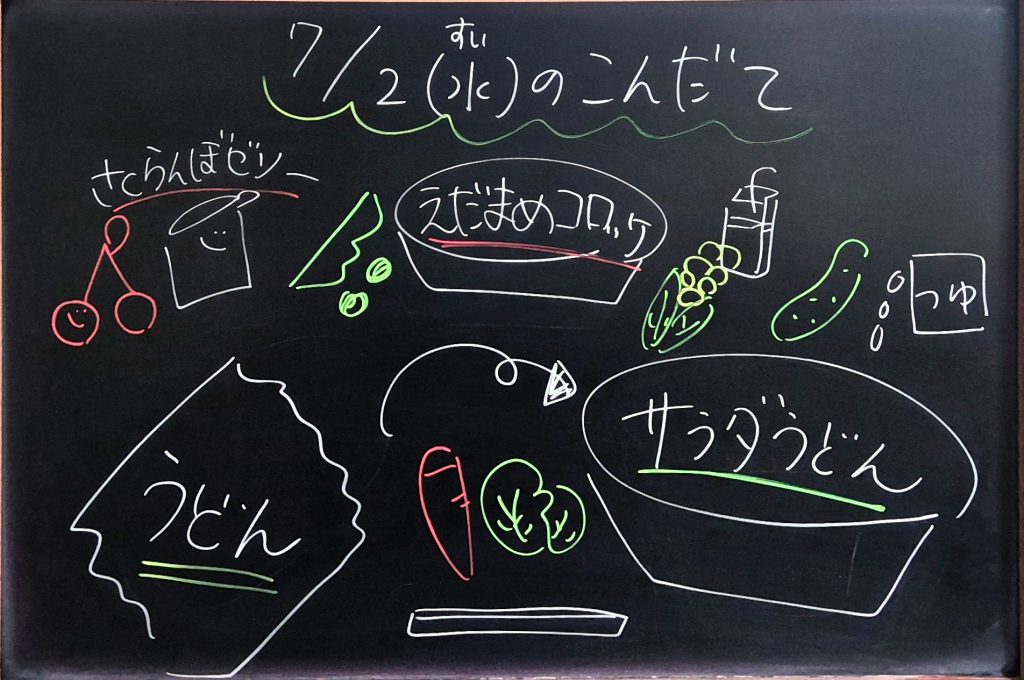 すい
7/2(水)のこんだて
さくらんぼゼリー
えだまめコロッケ
牛
つゆ
サラダうどん
うどん